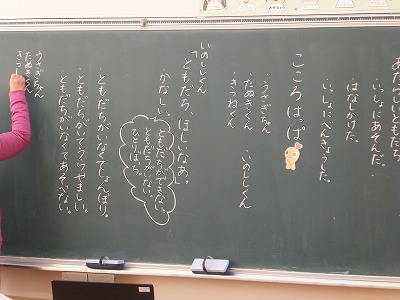 あたらしいともだち
・いっしょにあそんだ。
・はなしかけた。
・いっしょにべんきょうした。
こころはっぱ
・うさぎちゃん
・たぬきくん ・いのししくん
・きつねくん
いのししくん
「ともだち、ほしいなあ。」
かなしい。
ともだちができない。
ともだちがいない。
ひとりぼっち。
・ともだちがいなくてしょんぼり。
・ともだちがいてうらやましい。
・ともだちがいなくてあそべない。
うさぎちゃん
たぬきくん
きつ